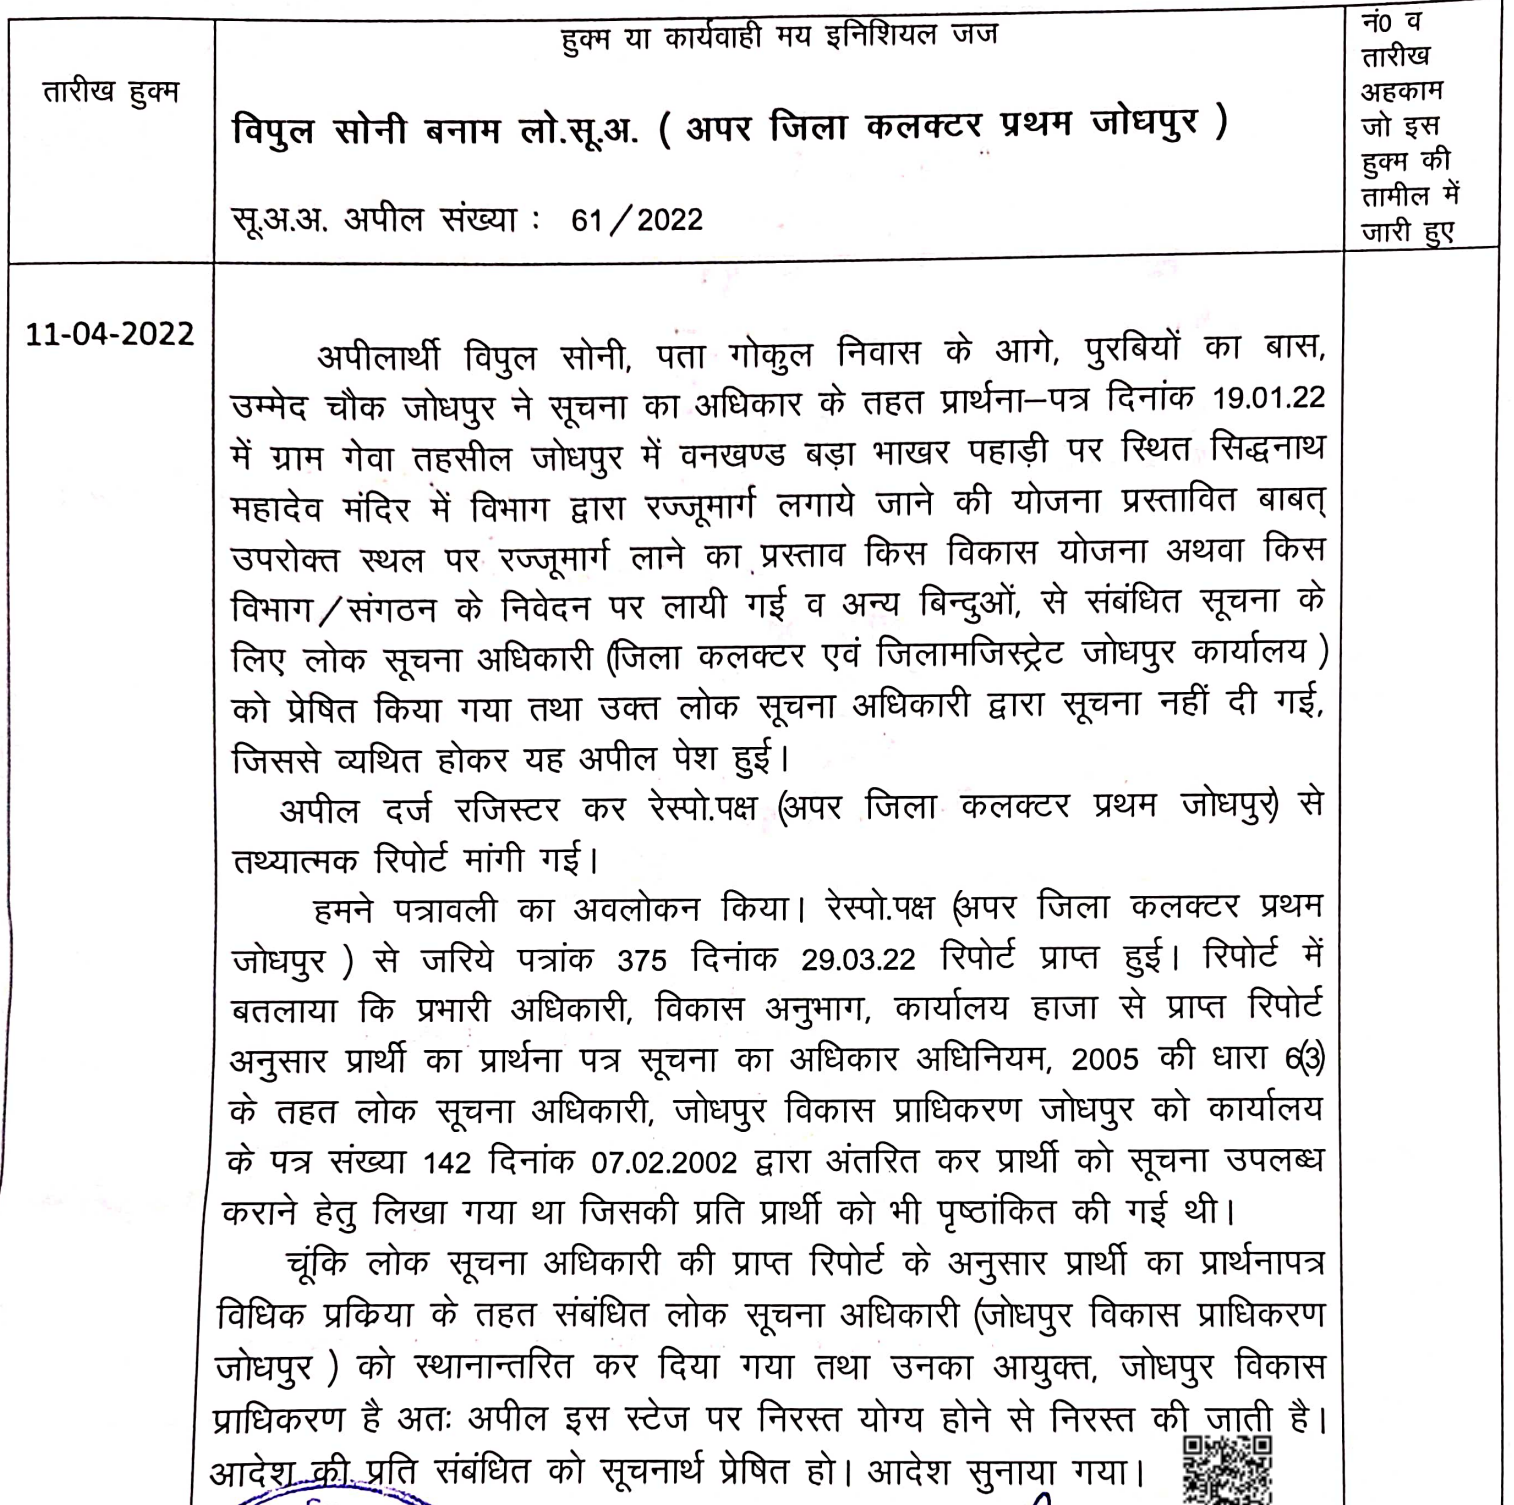 हुक्म या कार्यवाही मय इनिशियल जज
तारीख हुक्म
विपुल सोनी बनाम लो.सू.अ. ( अपर जिला कलक्टर प्रथम जोधपुर )
सू.अ.अ. अपील संख्या : 61/2022
नं0 व
तारीख
अहकाम
जो इस
हुक्म की
तामील में
जारी हुए
11-04-2022
अपीलार्थी विपुल सोनी, पता गोकुल निवास के आगे, पुरबियों का बास,
उम्मेद चौक जोधपुर ने सूचना का अधिकार के तहत प्रार्थना–पत्र दिनांक 19.01.22
में ग्राम गेवा तहसील जोधपुर में वनखण्ड बड़ा भाखर पहाड़ी पर स्थित सिद्धनाथ
महादेव मंदिर में विभाग द्वारा रज्जूमार्ग लगाये जाने की योजना प्रस्तावित बाबत्
उपरोक्त स्थल पर रज्जूमार्ग लाने का प्रस्ताव किस विकास योजना अथवा किस
विभाग/संगठन के निवेदन पर लायी गई व अन्य बिन्दुओं, से संबंधित सूचना के
लिए लोक सूचना अधिकारी (जिला कलक्टर एवं जिलामजिस्ट्रेट जोधपुर कार्यालय )
को प्रेषित किया गया तथा उक्त लोक सूचना अधिकारी द्वारा सूचना नहीं दी गई,
जिससे व्यथित होकर यह अपील पेश हुई।
अपील दर्ज रजिस्टर कर रेस्पो.पक्ष (अपर जिला कलक्टर प्रथम जोधपुर) से
तथ्यात्मक रिपोर्ट मांगी गई।
हमने पत्रावली का अवलोकन किया। रेस्पो.पक्ष (अपर जिला कलक्टर प्रथम
जोधपुर ) से जरिये पत्रांक 375 दिनांक 29.03.22 रिपोर्ट प्राप्त हुई। रिपोर्ट में
बतलाया कि प्रभारी अधिकारी, विकास अनुभाग, कार्यालय हाजा से प्राप्त रिपोर्ट
अनुसार प्रार्थी का प्रार्थना पत्र सूचना का अधिकार अधिनियम, 2005 की धारा 6(3)
के तहत लोक सूचना अधिकारी, जोधपुर विकास प्राधिकरण जोधपुर को कार्यालय
के पत्र संख्या 142 दिनांक 07.02.2002 द्वारा अंतरित कर प्रार्थी को सूचना उपलब्ध
कराने हेतु लिखा गया था जिसकी प्रति प्रार्थी को भी पृष्ठांकित की गई थी।
चूंकि लोक सूचना अधिकारी की प्राप्त रिपोर्ट के अनुसार प्रार्थी का प्रार्थनापत्र
विधिक प्रकिया के तहत संबंधित लोक सूचना अधिकारी (जोधपुर विकास प्राधिकरण
जोधपुर ) को स्थानान्तरित कर दिया गया तथा उनका आयुक्त, जोधपुर विकास
प्राधिकरण है अतः अपील इस स्टेज पर निरस्त योग्य होने से निरस्त की जाती है।
आदेश की प्रति संबंधित को सूचनार्थ प्रेषित हो। आदेश सुनाया गया।